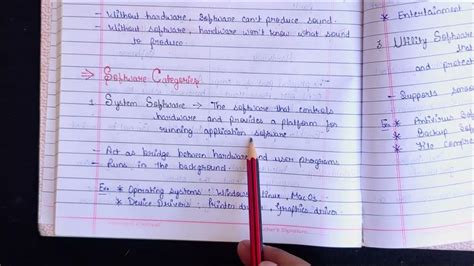 - Without hardware, Software can't produce sound.
- Without software, hardware won't know what sound
to produce.
⇒ Software Categories
1. System Software → The software that controls
hardware and provides a platform for
running application software
- Act as bridge between hardware and user programs
- Runs in the background.
Ex: * Operating systems : Windows, Linux, MacOs.
* Device Drivers : Printer driver, graphics driver
* Entertainment
3. Utility Software
that
and protect
- Supports
Ex: * Antivirus Sof
* Backup Sof
* File Compres